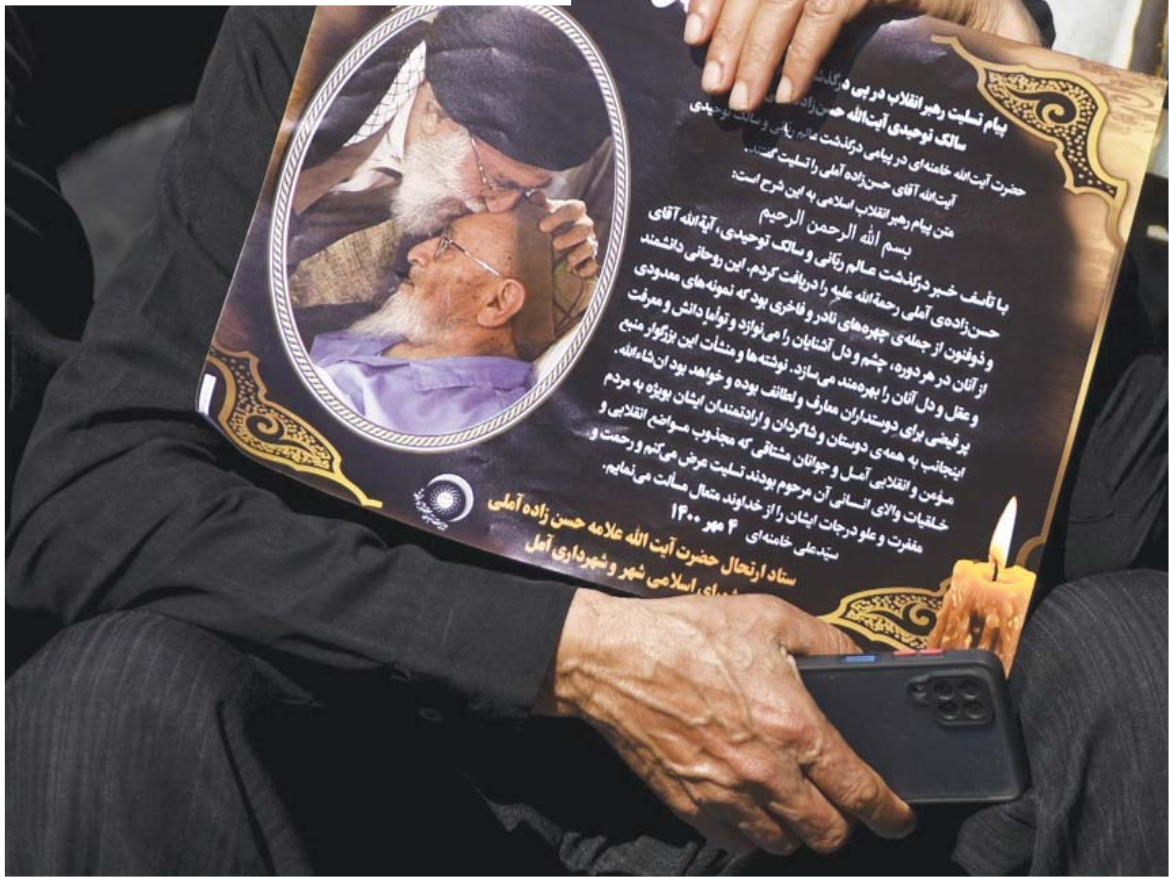 پیام تسلیت رهبر انقلاب در پی درگذشت
سالک توحیدی آیت‌الله حسن‌زاده
حضرت آیت‌الله خامنه‌ای در پیامی درگذشت عالم ربّانی و سالک توحیدی
آیت‌الله آقای حسن‌زاده آملی را تسلیت گفتند.
متن پیام رهبر انقلاب اسلامی به این شرح است:
بسم الله الرحمن الرحیم
با تأسف خبر درگذشت عالم ربّانی و سالک توحیدی، آیة‌الله آقای
حسن‌زاده‌ی آملی رحمةالله علیه را دریافت کردم. این روحانی دانشمند
و ذوفنون از جمله‌ی چهره‌های نادر و فاخری بود که نمونه‌های معدودی
از آنان در هر دوره، چشم و دل آشنایان را می‌نوازد و توأما دانش و معرفت
و عقل و دل آنان را بهره‌مند می‌سازد. نوشته‌ها و منشآت این بزرگوار منبع
پر فیضی برای دوستداران معارف و لطائف بوده و خواهد بود ان‌شاءالله.
اینجانب به همه‌ی دوستان و شاگردان و ارادتمندان ایشان بویژه به مردم
مؤمن و انقلابی آمل و جوانان مشتاقی که مجذوب مواضع انقلابی و
خلقیات والای انسانی آن مرحوم بودند تسلیت عرض می‌کنم و رحمت و
مغفرت و علو درجات ایشان را از خداوند متعال مسألت می‌نمایم.
سیّدعلی خامنه‌ای ۴ مهر ۱۴۰۰
ستاد ارتحال حضرت آیت الله علامه حسن زاده آملی
شورای اسلامی شهر و شهرداری آمل